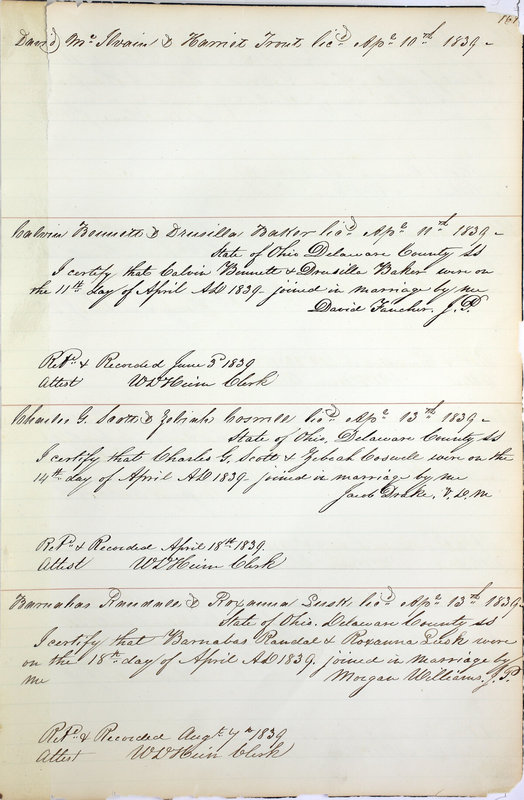 161
David McIlvain & Harriet Trout licd Apl 10th 1839 -
Calvin Bennett & Drusilla Baker licd Apl 11th 1839 -
State of Ohio Delaware County SS
I certify that Calvin Bennett & Drusilla Baker were on
the 11th day of April AD 1839 joined in marriage by me
David Fancher, J.P.
Retd & Recorded June 3d 1839
Attest W D Heim Clerk
Charles G. Scott & Zebiah Coswell licd Apl 13th 1839 -
State of Ohio, Delaware County SS
I certify that Charles G. Scott & Zebiah Coswell were on the
14th day of April AD 1839 joined in marriage by me
Jacob Drake, V.D.M
Retd & Recorded April 18th 1839.
Attest W D Heim Clerk
Barnabas Randall & Roxanna Lusk licd Apl 13th 1839 -
State of Ohio. Delaware County SS
I certify that Barnabas Randal & Roxanna Lusk were
on the 18th day of April AD 1839. joined in marriage by
me Morgan Williams, J.P.
Retd & Recorded Augt 7th 1839
Attest W D Heim Clerk